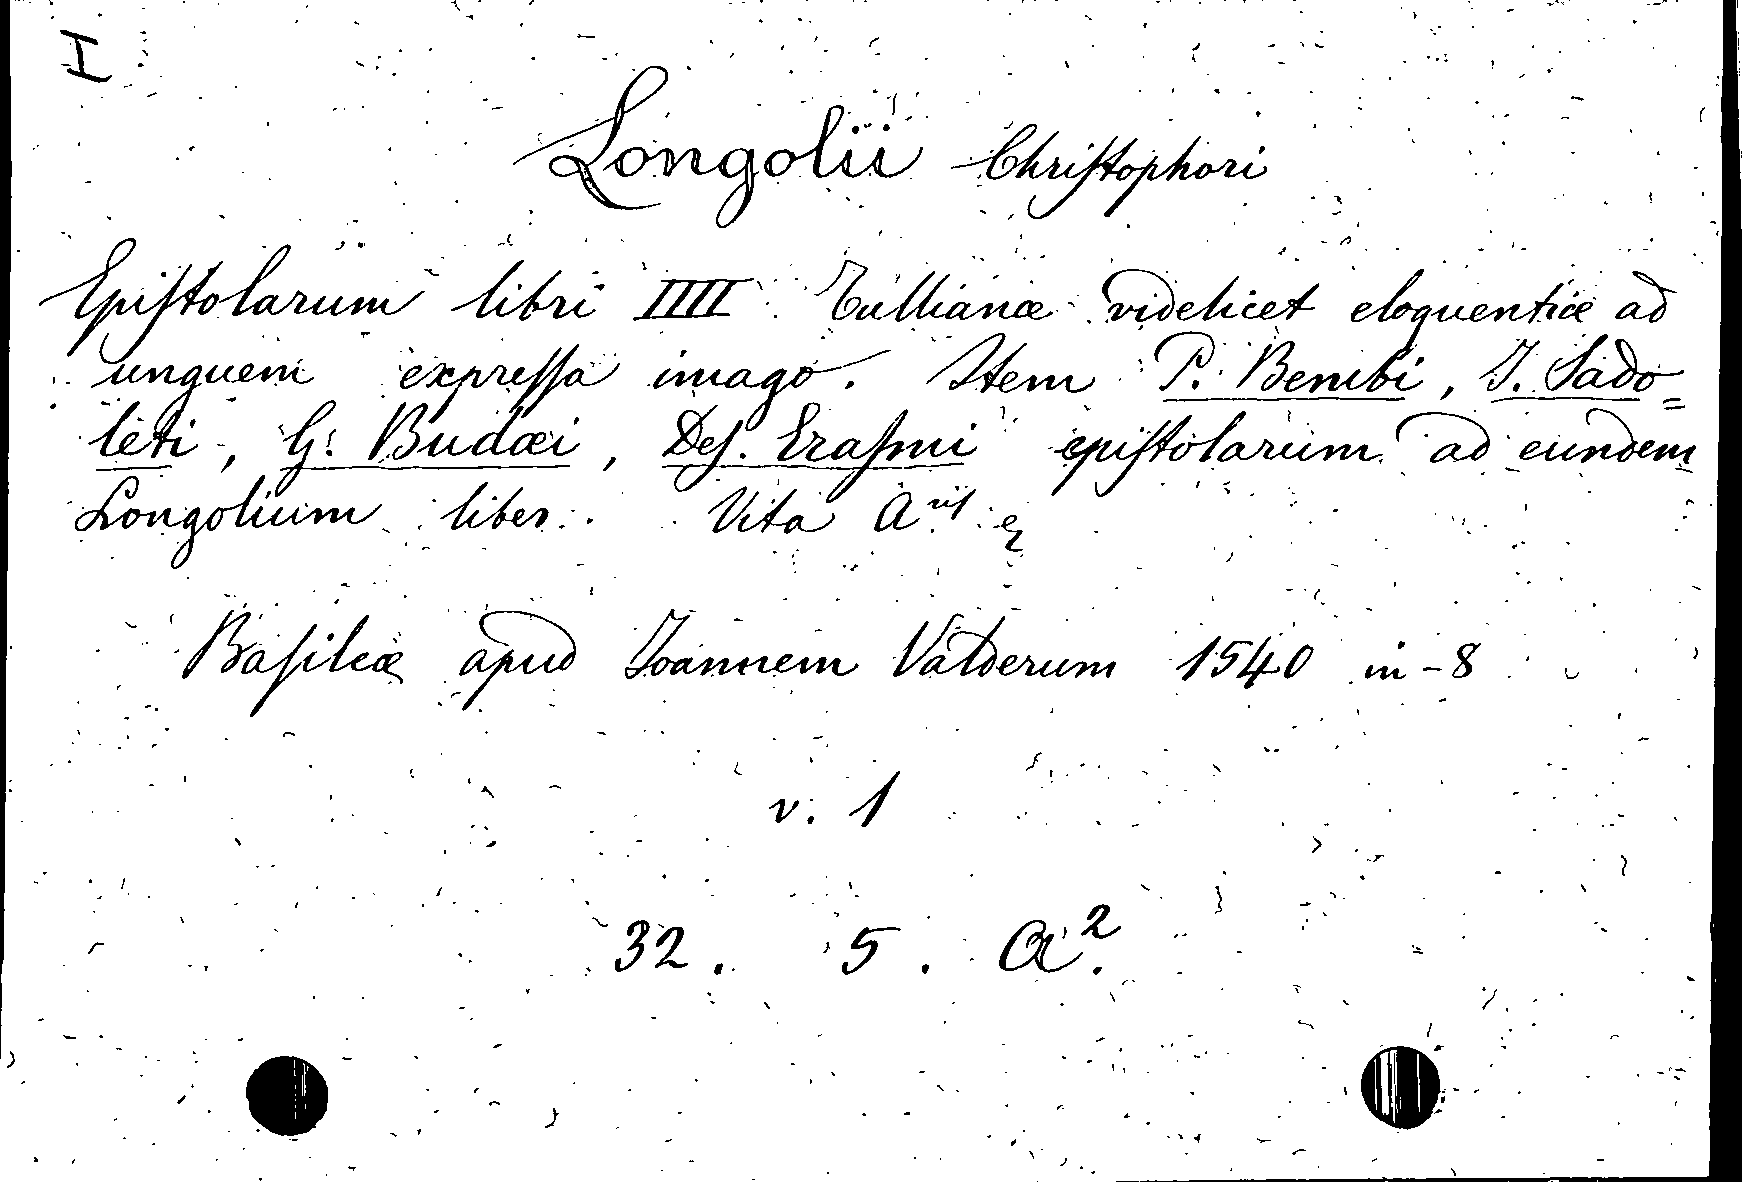 I
Longolii Chriſtophori
Epiſtolarum libri IIII Tullianæ videlicet eloquentiæ ad
unguem expreſſa imago. Item P. Bembi, J. Sado=
leti, G. Budæi, Deſ. Eraſmi epiſtolarum ad eundem
Longolium liber. Vita
Baſileæ apud Joannem Valderum 1540 in-8
v. 1
32. 5. a².